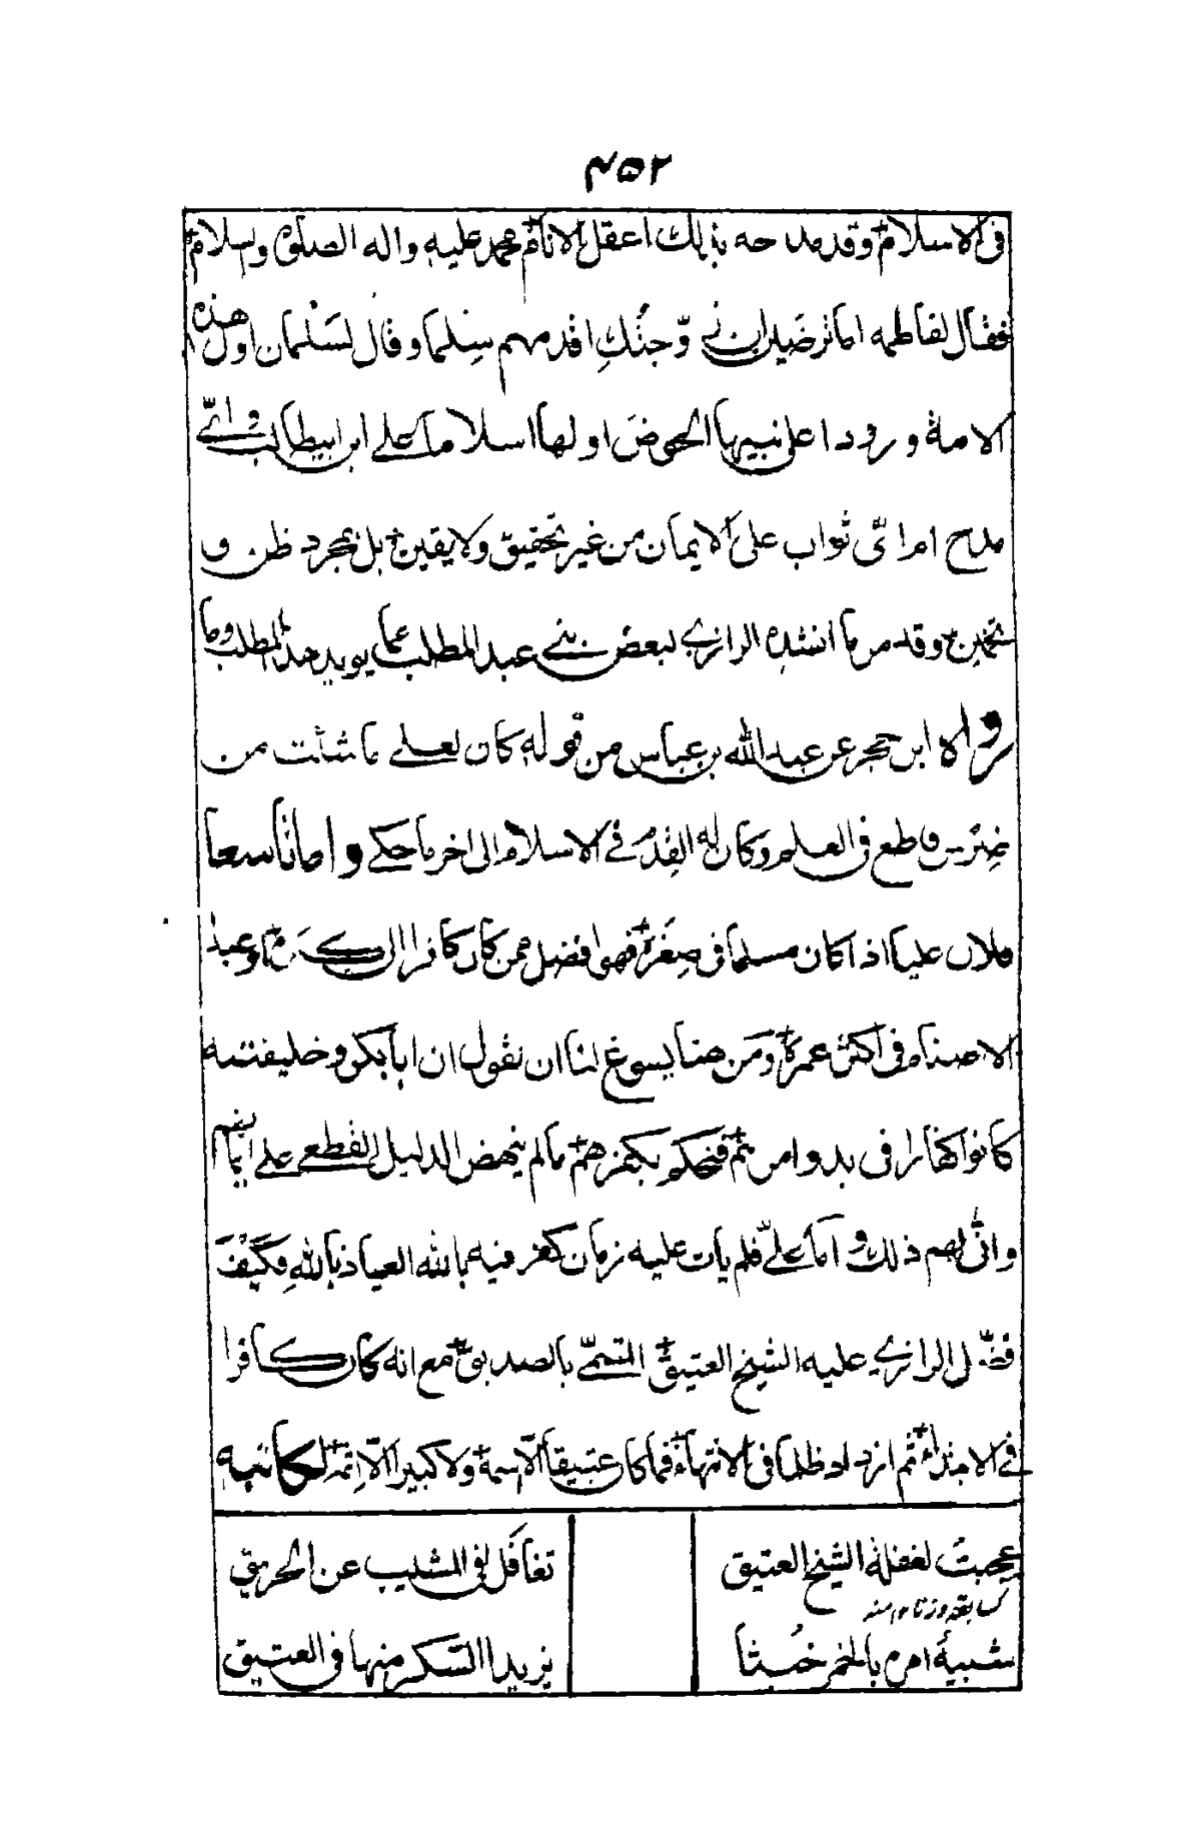 ۴۵۲
فى الاسلام وقد مدحه بذلك اعقل الانام محمد عليه واله الصلوة والسلام
فقال لفاطمه اما ترضين انى زوّجتُكِ اقدمهم سِلما وقال لسَلْمان اول هذه
الامة ورودا على نبيها الحوضَ اولها اسلاما على ابن ابيطالب واىّ
مدح ام اىّ ثواب على الايمان من غير تحقيق ولا يقين بل بمجرد ظن و
تخمين وقد مر ما انشده الرازى لبعض بنى عبد المطلب مما يويد هذا المطلب وما
رواه ابن حجر عن عبد الله بن عباس من قوله كان لعلى ما شئت من
ضِرْس قاطع فى العلم وكان له القِدَم فى الاسلام الى اخر ما حكى واما تاسعا
فلان عليا اذا كان مسلما فى صِغَره فهو افضل ممن كان كافرا فى وعبد
الاصنام فى اكثر عمره ومن هنا يسوغ لنا ان نقول ان ابا بكر وخليفته
كانوا كفارا فى بدو امرهم فنحكم بكفرهم ما لم ينهض الدليل القطعى على ايمانهم
وانّى لهم ذلك واما علىّ فلم يات عليه زمان كفر فيه بالله العياذ باللهِ فكَيْفَ
فضّل الرازى عليه الشيخ العتيق المتسمّى بالصديق مع انه كان كافرا
فى الابتداء ثم ازداد ظلما فى الانتهاء فما كان عتيقا الّا اسمه ولا كبيرا الّا اِثمه لكاتبه
عجبتُ لغفلة الشيخ العتيق تغافَل فى المشيب عن الحريق
شبيبةُ امرء بالخمر خُبثا يزيد السّكر منها فى العتيق